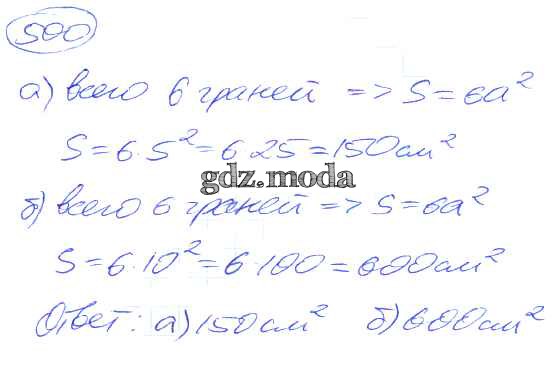 500
а) всего 6 граней => S=6a²
S=6·5²=6·25=150см²
gdz.moda
б) всего 6 граней => S=6a²
S=6·10²=6·100=600см²
Ответ: а) 150см² б) 600см²